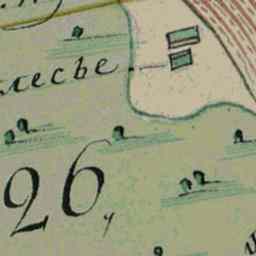 лесье.
26,